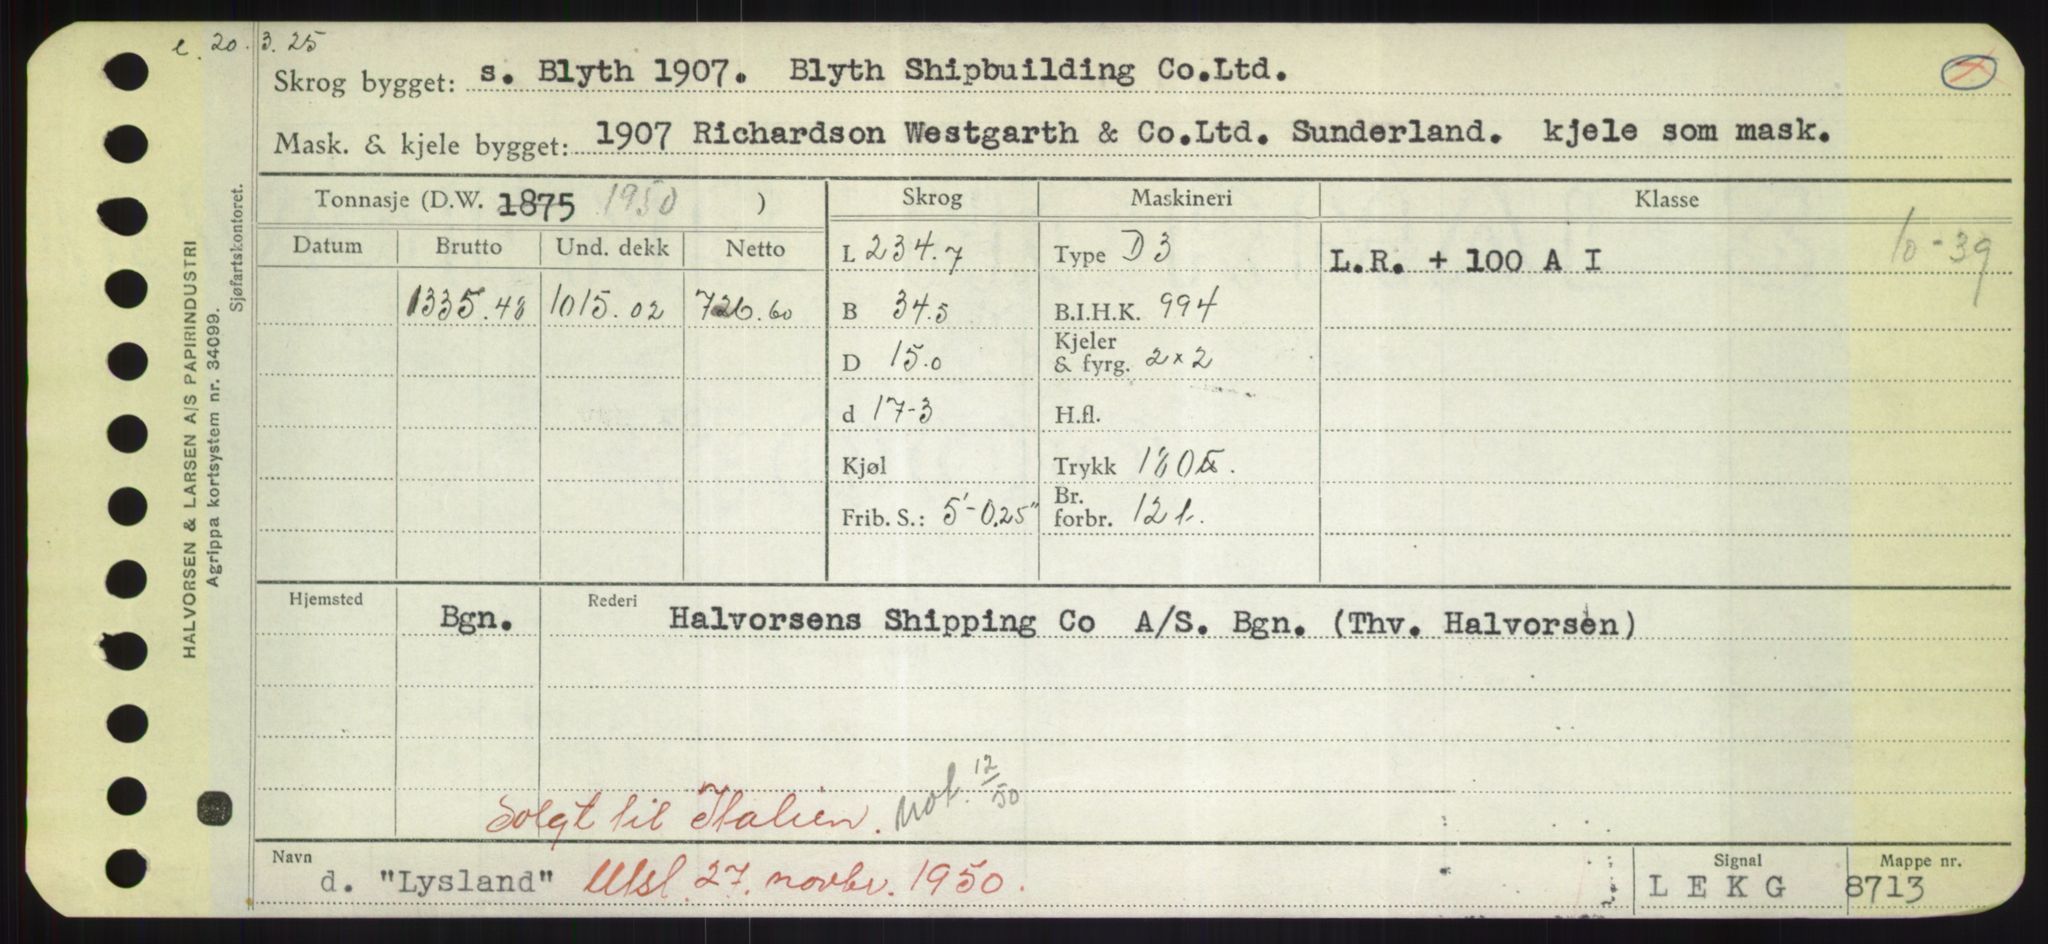 e. 20. 3. 25
Skrog bygget: s. Blyth 1907. Blyth Shipbuilding Co.Ltd.
Mask. & kjele bygget: 1907 Richardson Westgarth & Co.Ltd. Sunderland. kjele som mask.
Tonnasje (D.W. 1875 1950 ) Skrog Maskineri Klasse
Datum Brutto Und. dekk Netto L 234.7 Type D 3 L.R. + 100 A I 10-39
1335.48 1015.02 726.60 B 34.5 B.I.H.K. 994
D 15.0 Kjeler & fyrg. 2x2
d 17-3 H.fl.
Kjøl Trykk 180
Frib. S.: 5'-0.25" Br. forbr. 12 t.
Hjemsted Bgn. Rederi Halvorsens Shipping Co A/S. Bgn. (Thv. Halvorsen)
Solgt til Italien. not. 12/50
Navn d. "Lysland" Utsl. 27. novbr. 1950. Signal LEKG Mappe nr. 8713
HALVORSEN & LARSEN A/S PAPIRINDUSTRI
Agrippa kortsystem nr. 34099.
Sjøfartskontoret.